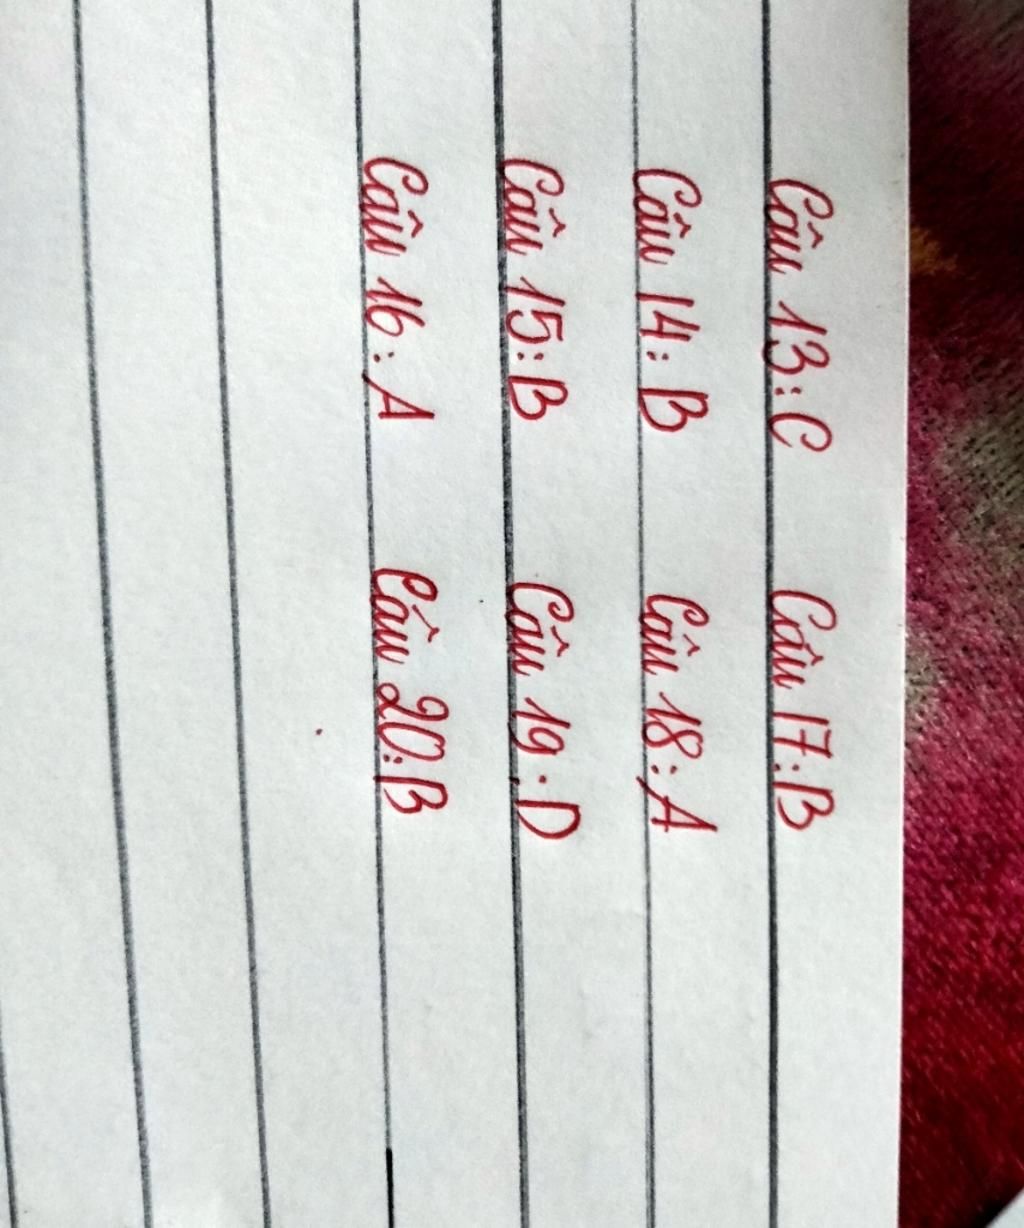 Câu 13: C Câu 17: B
Câu 14: B Câu 18: A
Câu 15: B Câu 19: D
Câu 16: A Câu 20: B